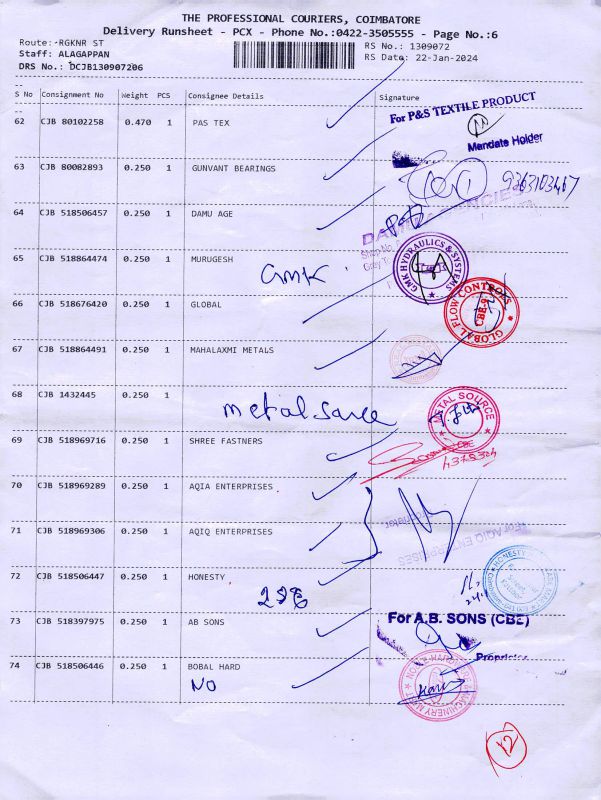 THE PROFESSIONAL COURIERS, COIMBATORE
Delivery Runsheet - PCX - Phone No.:0422-3505555 - Page No.:6
Route:-RGKNR ST RS No.: 1309072
Staff: ALAGAPPAN RS Date: 22-Jan-2024
DRS No.: DCJB130907206
S No Consignment No Weight PCS Consignee Details Signature
62 CJB 80102258 0.470 1 PAS TEX
For P&S TEXTILE PRODUCT
Mandate Holder
63 CJB 80082893 0.250 1 GUNVANT BEARINGS
9363103467
64 CJB 518506457 0.250 1 DAMU AGE
65 CJB 518864474 0.250 1 MURUGESH
GMK
GMK HYDRAULICS & SYSTEMS
66 CJB 518676420 0.250 1 GLOBAL
GLOBAL FLOW CONTROLS
CBE-9
67 CJB 518864491 0.250 1 MAHALAXMI METALS
68 CJB 1432445 0.250 1
metal
METAL SOURCE
CBE
69 CJB 518969716 0.250 1 SHREE FASTNERS
70 CJB 518969289 0.250 1 AQIA ENTERPRISES
71 CJB 518969306 0.250 1 AQIQ ENTERPRISES
For AQIQ ENTERPRISES
Proprietor
72 CJB 518506447 0.250 1 HONESTY
HONESTY
73 CJB 518397975 0.250 1 AB SONS
For A.B. SONS (CBE)
Proprietor
74 CJB 518506446 0.250 1 BOBAL HARD
NO
MACHINERY MART
12